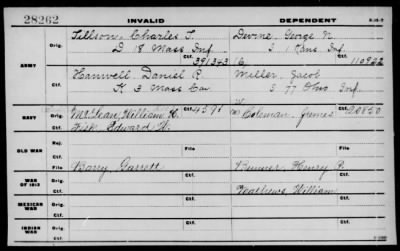 28262 INVALID DEPENDENT
Tillson, Charles T. Devine, George N.
ARMY
Orig. D 18 Mass Inf. I 1 Inf
Ctf. 391343 Ctf. 110922
Hanwell Daniel P. Miller, Jacob
K 3 Mass Cav I 77 Ohio Inf.
NAVY
Orig. McLean, William H. 4591 Coleman, James 20850
Ctf. Fisk Edward W.
OLD WAR
Rej.
Ctf. File File
WAR OF 1812
Orig. Barry, Garrett Bunner, Henry P.
Ctf. Mathews, William
MEXICAN WAR
Orig.
Ctf.
INDIAN WAR
Orig.
Ctf.